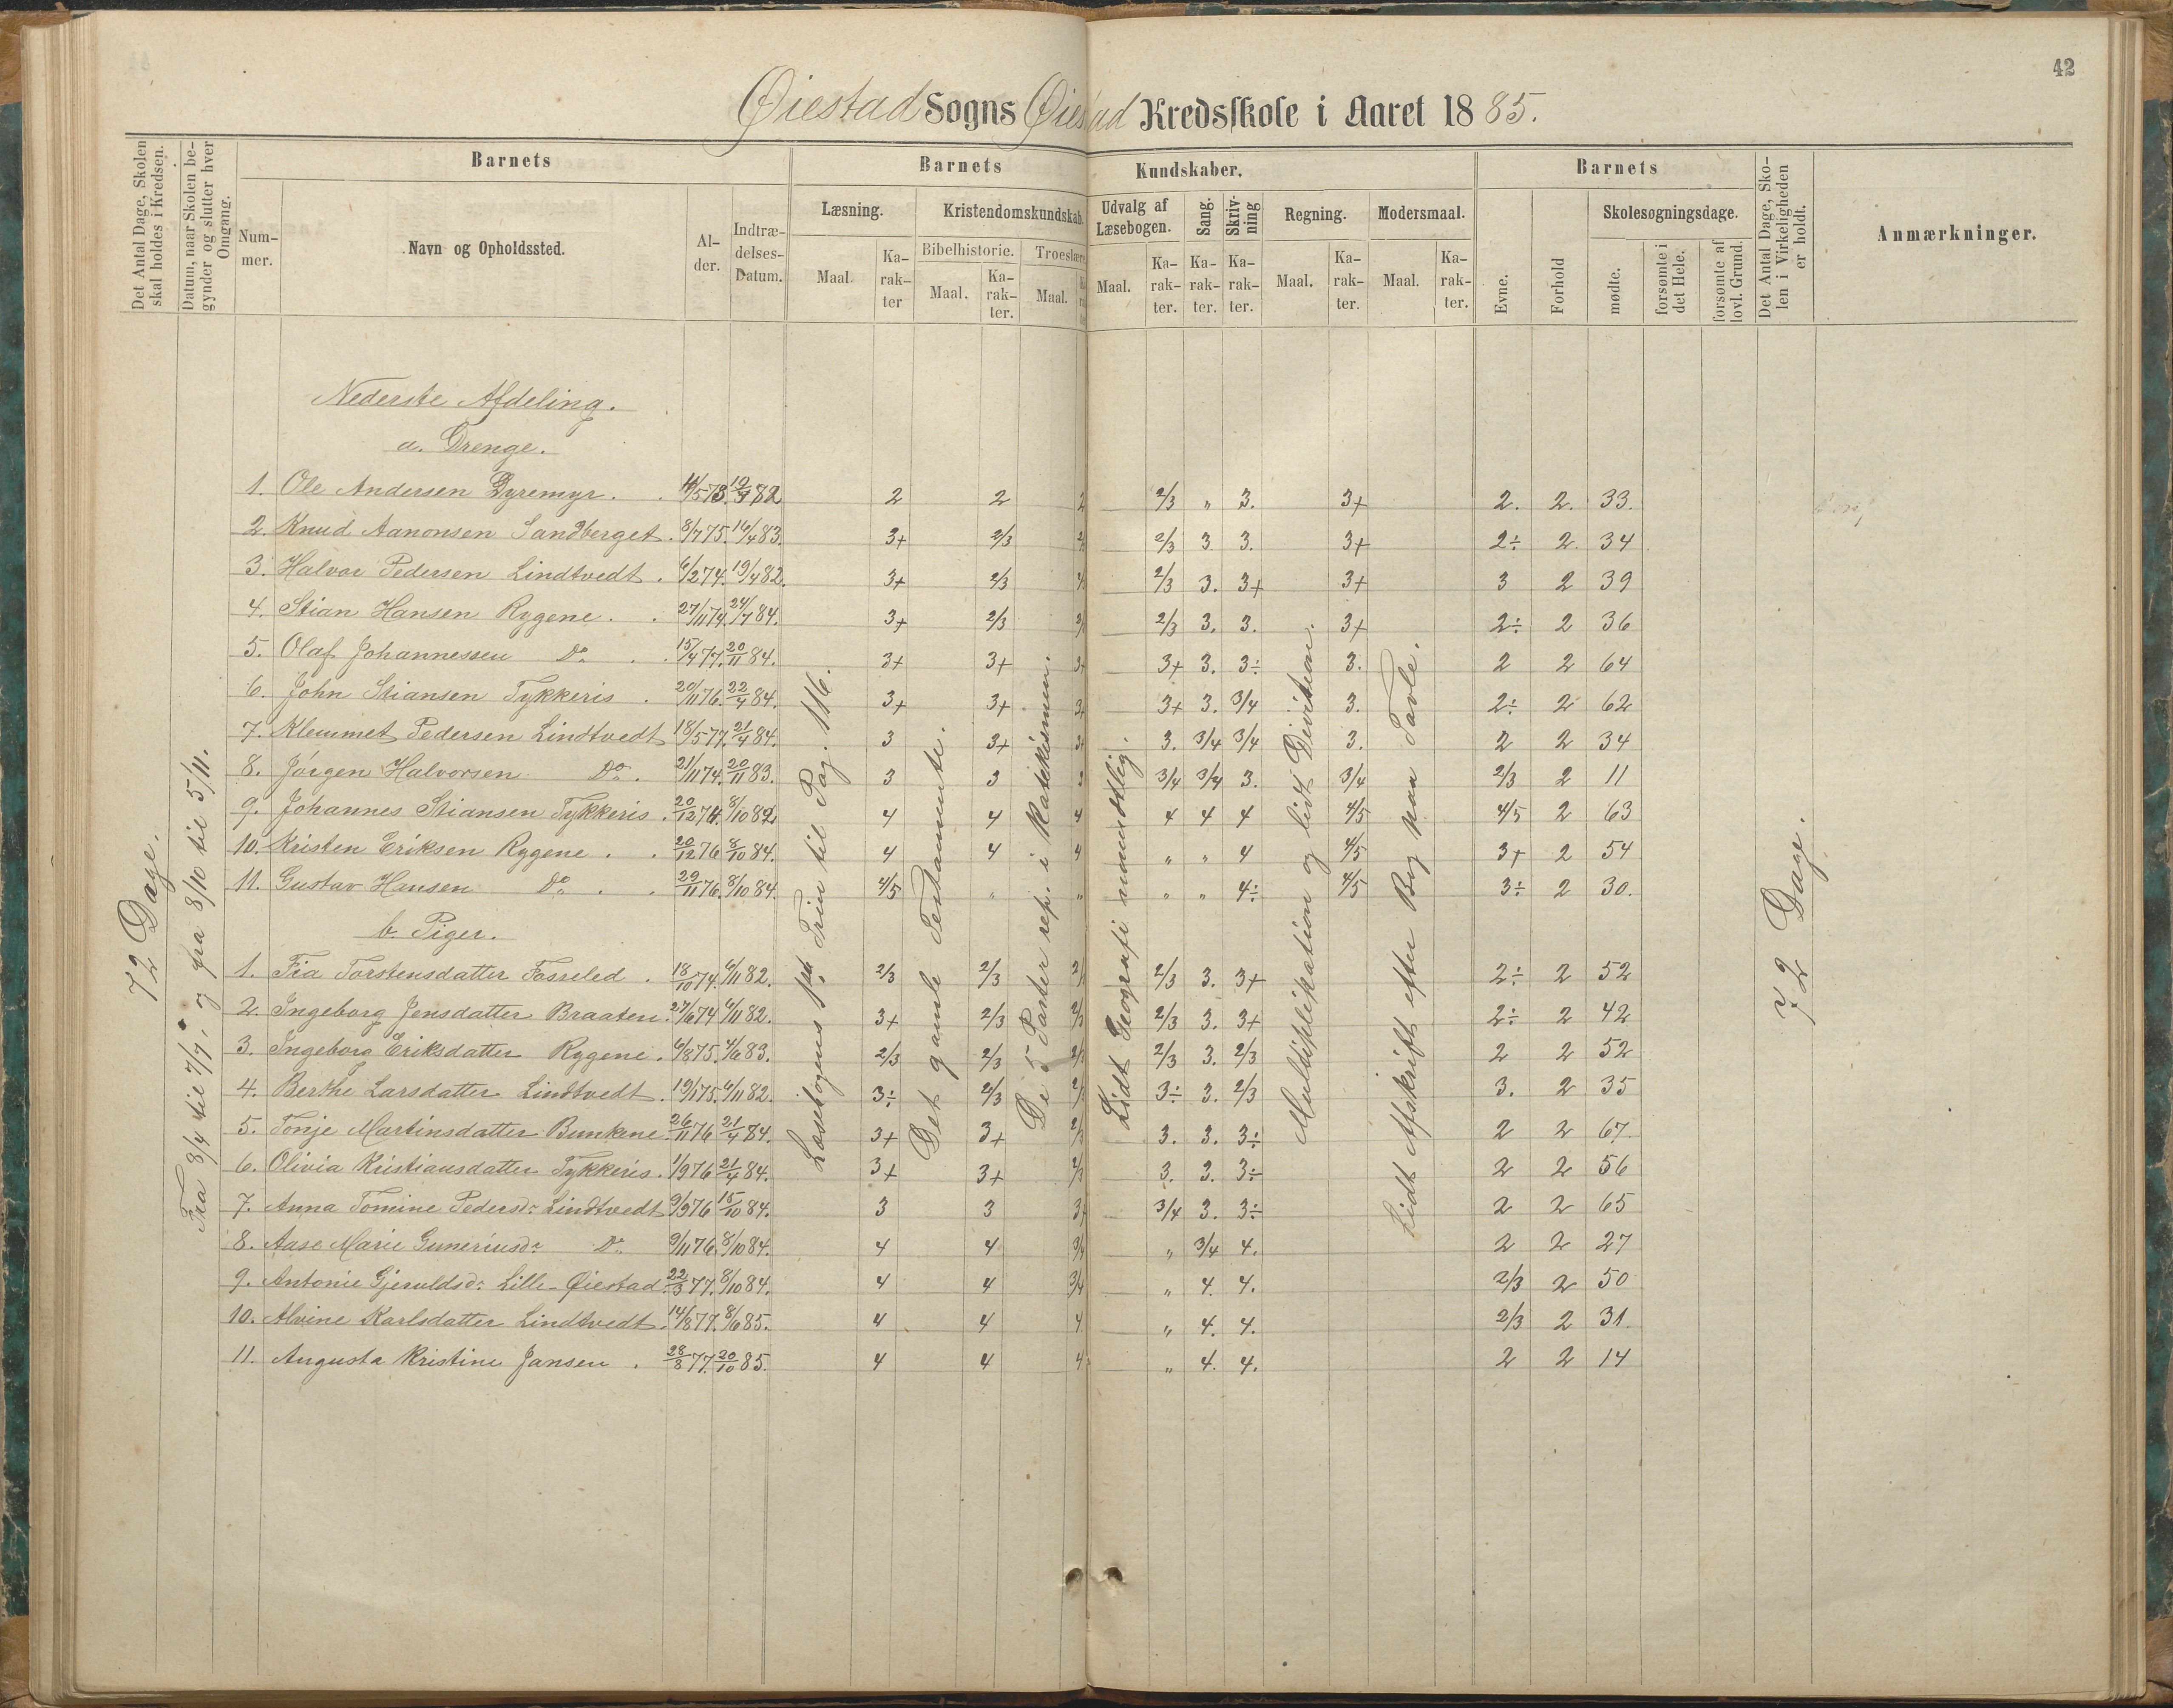 42
Øiestad Sogns Øiestad Kredsskole i Aaret 1885.
Det Antal Dage, Skolen skal holdes i Kredsen.
Datum, naar Skolen begynder og slutter hver Omgang.
Barnets
Nummer.
Navn og Opholdssted.
Alder.
Indtrædelses-Datum.
Barnets Kundskaber.
Læsning.
Maal.
Karakter
Kristendomskundskab.
Bibelhistorie.
Maal.
Karakter.
Troeslære
Maal.
Udvalg af Læsebogen.
Maal.
Karakter.
Sang.
Karakter.
Skrivning
Karakter.
Regning.
Maal.
Karakter.
Modersmaal.
Maal.
Karakter.
Barnets
Evne.
Forhold
Skolesøgningsdage.
mødte.
forsømte i det Hele.
forsømte af lovl. Grund.
Det Antal Dage, Skolen i Virkeligheden er holdt.
Anmærkninger.
72 Dage.
Fra 8/4 til 7/7, og fra 8/10 til 5/11.
Læsebogens 1ste Trin til Pag. 116.
Det gamle Testamente.
De 5 Parter rep. i Katekismen.
Lidt Geografi mundtlig.
Multiplikation og lidt Division.
Lidt Afskrift efter Bog paa Tavle.
72 Dage.
Nederste Afdeling.
a. Drenge.
1. Ole Andersen Dyremyr. 2 2 2 2/3 " 3. 3+ 2. 2. 33.
2. Knud Aanonsen Sandberget. 8/7 75. 16/4 83. 3+ 2/3 2/3 3 3. 3+ 2÷ 2. 34
3. Halvor Pedersen Lindtvedt. 6/2 74. 19/4 82. 3+ 2/3 2/3 3. 3+ 3+ 3 2 39
4. Stian Hansen Rygene. 27/11 74. 24/7 84. 3+ 2/3 2/3 3. 3. 3+ 2÷ 2 36
5. Olaf Johannessen Do. 15/4 77. 20/11 84. 3+ 3+ 3+ 3+ 3. 3÷ 3. 2 2 64
6. John Stiansen Tykkeris. 20/11 76. 22/4 84. 3+ 3+ 3+ 3+ 3. 3/4 3. 2÷ 2 62
7. Klemmet Pedersen Lindtvedt 18/5 77. 21/4 84. 3 3+ 3+ 3. 3/4 3/4 3. 2 2 34
8. Jørgen Halvorsen Do. 21/11 74. 20/11 83. 3 3 3 3/4 3/4 3. 3/4 2/3 2 11
9. Johannes Stiansen Tykkeris. 4 4 4 4 4 4 4/5 4/5 2 63
10. Kristen Eriksen Rygene. 20/12 76 8/10 84. 4 4 4 " " 4 4/5 3+ 2 54
11. Gustav Hansen Do. 29/11 76. 8/10 84. 4/5 " " " " 4÷ 4/5 3÷ 2 30.
b. Piger.
1. Fia Torstensdatter Fosseled. 18/10 74. 6/11 82. 2/3 2/3 2/3 3. 3+ 2÷ 2 52
2. Ingeborg Jensdatter Braaten. 27/6 74 6/11 82. 3+ 2/3 2/3 2/3 3. 3+ 2÷ 2 42
3. Ingeborg Eriksdatter Rygene. 6/8 75. 4/6 83. 2/3 2/3 2/3 2/3 3. 2/3 2 2 52
4. Berthe Larsdatter Lindtvedt. 19/1 75. 6/11 82. 3÷ 2/3 3÷ 3. 2/3 3. 2 35
5. Tonje Martinsdatter Bunkene. 26/11 76 21/4 84. 3+ 3+ 2/3 3. 3. 3÷ 2 2 67.
6. Olivia Kristiansdatter Tykkeris. 1/9 76 21/4 84. 3+ 3+ 2/3 3. 3. 3÷ 2 2 56
7. Anna Tomine Pedersdr. Lindtvedt 9/9 76 15/10 84. 3 3 3+ 3/4 3. 3÷ 2 2 65
8. Aase Marie Guneriusdr. Do. 9/11 76. 8/10 84. 4 4 3/4 " 3/4 4. 2 2 27
9. Antonie Gjeruldsdr. Lille-Øiestad. 22/3 77. 8/10 84. 4 4 3/4 " 4. 4. 2/3 2 50
10. Alvine Karlsdatter Lindtvedt. 14/8 77. 8/6 85. 4 4 4 " 4. 4. 2/3 2 31.
11. Augusta Kristine Jansen. 28/8 77. 20/10 85. 4 4 4 " 4. 4. 2 2 14